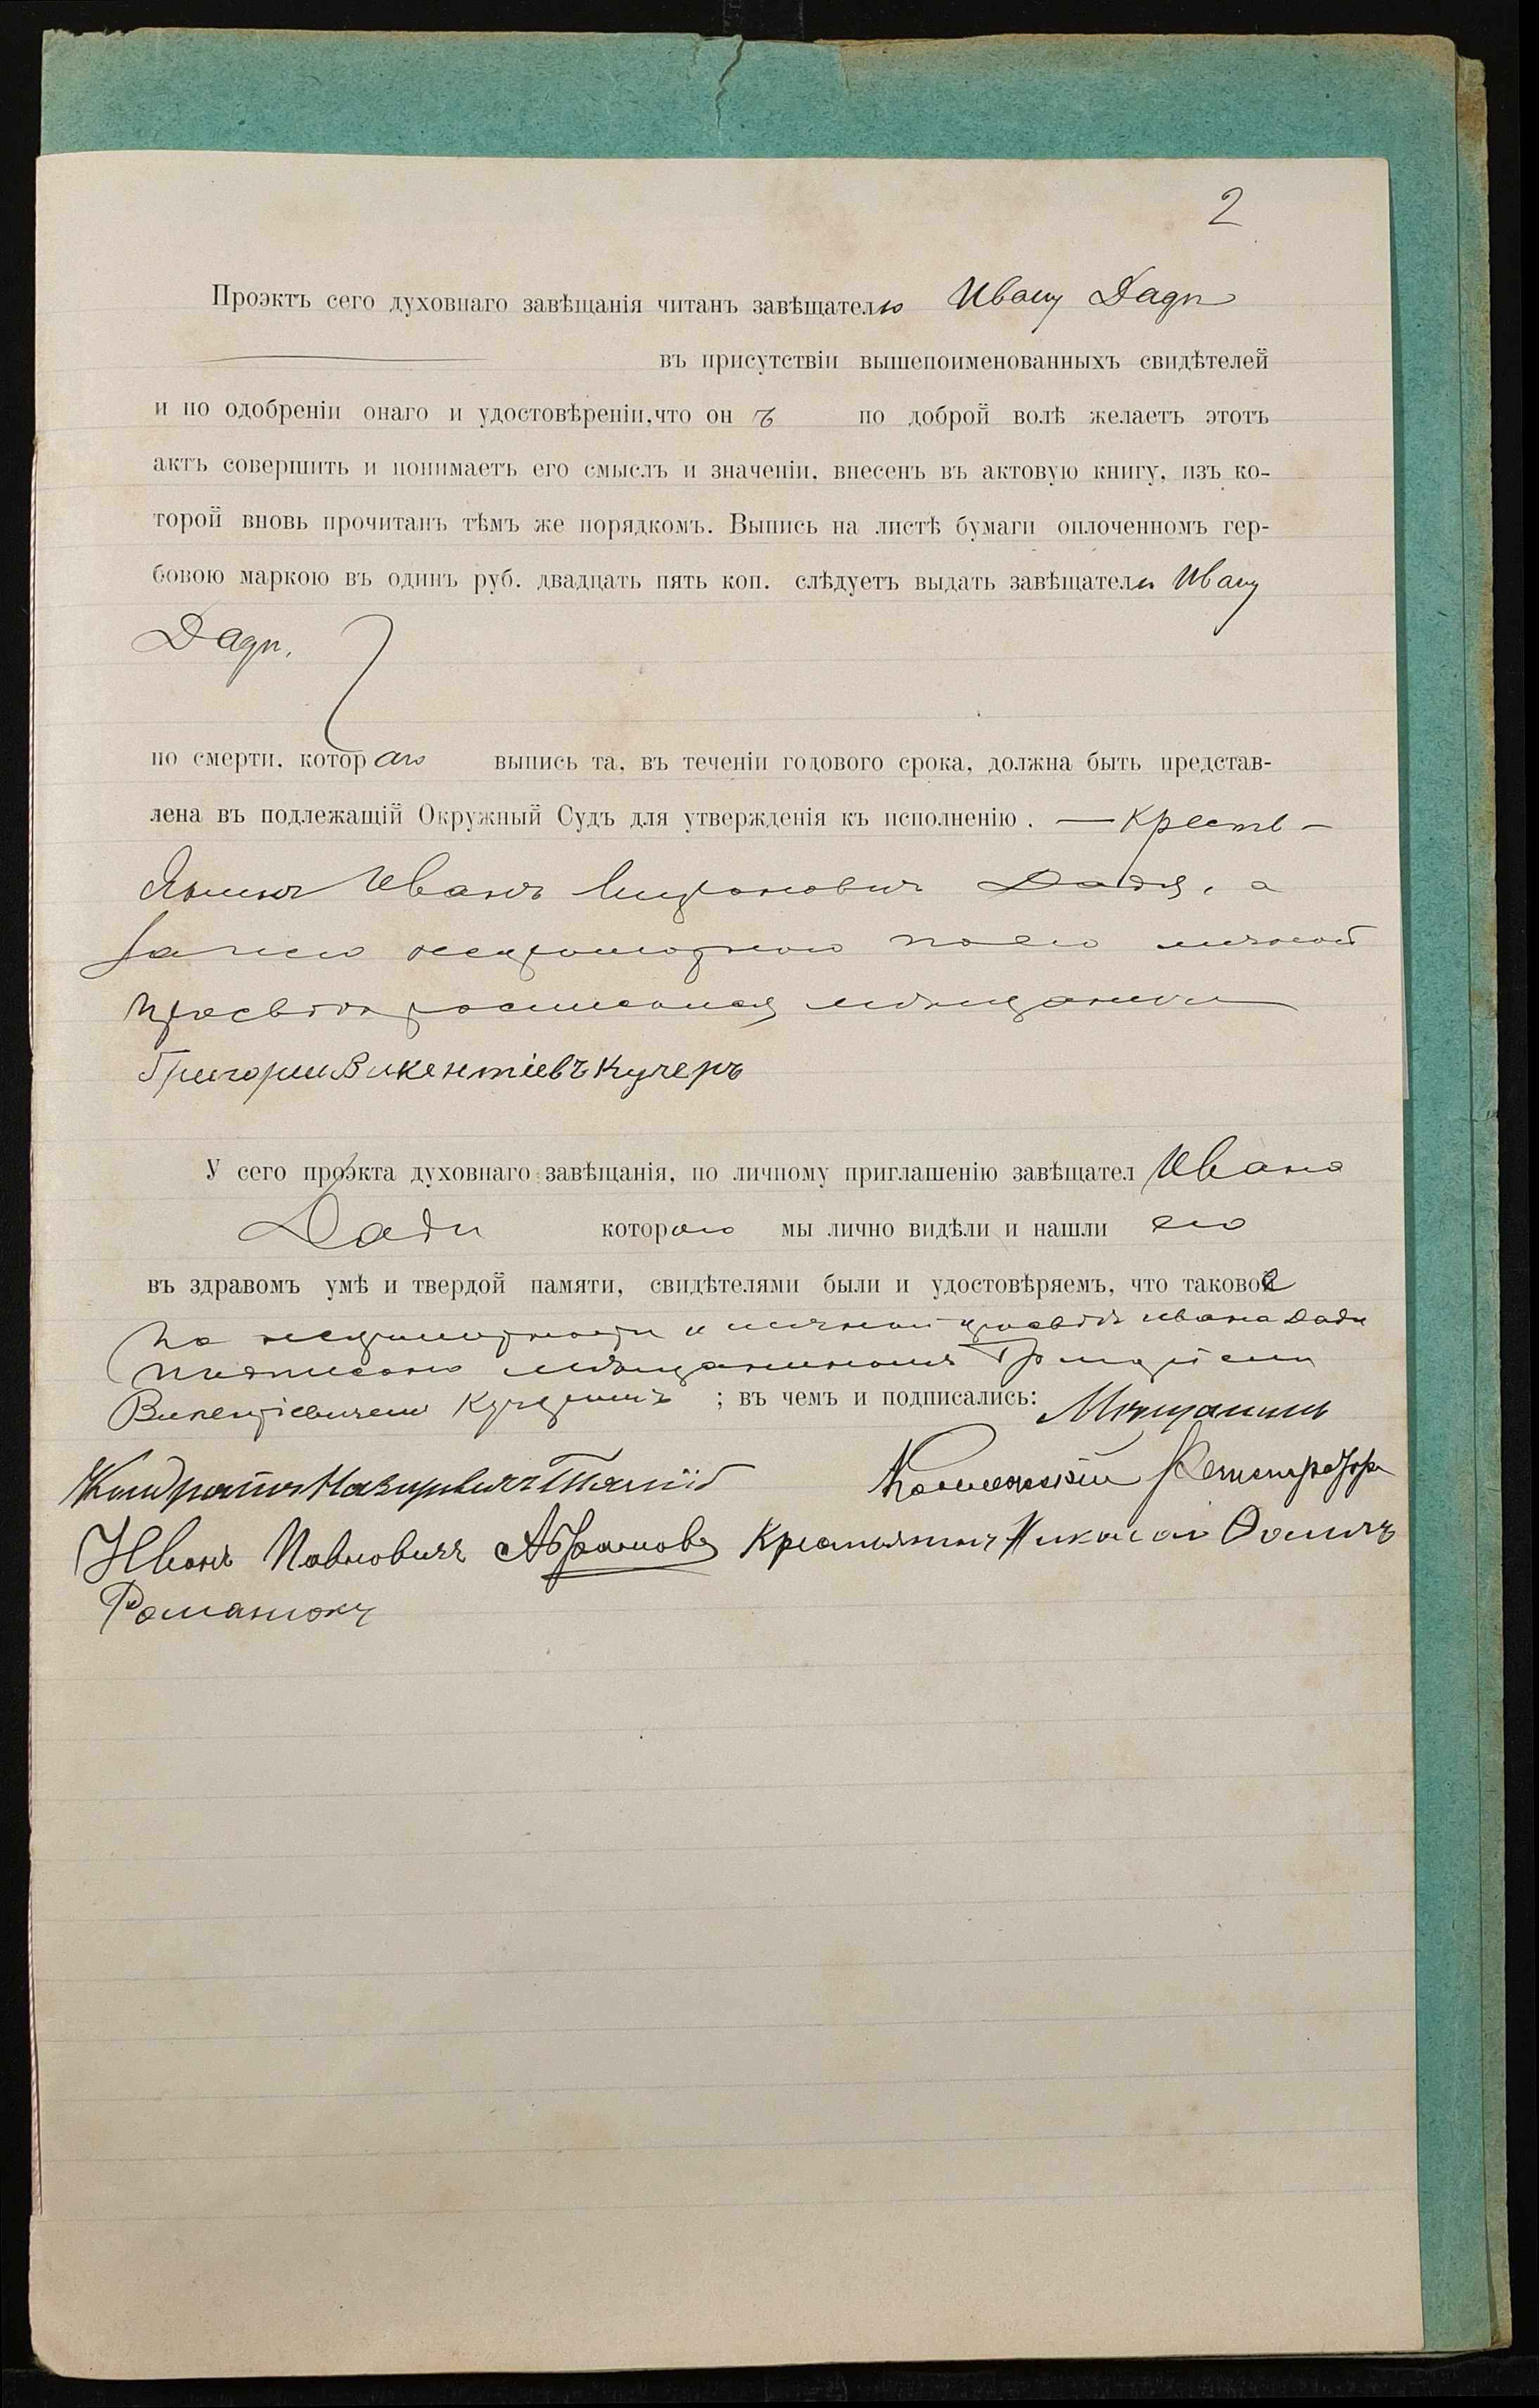 2
Проэктъ сего духовнаго завѣщанія читанъ завѣщателю Ивану Дадѣ
въ присутствіи вышепоименованныхъ свидѣтелей
и по одобреніи онаго и удостовѣреніи, что он ъ по доброй волѣ желаетъ этотъ
актъ совершить и понимаетъ его смыслъ и значеніи, внесенъ въ актовую книгу, изъ ко-
торой вновь прочитанъ тѣмъ же порядкомъ. Выпись на листѣ бумаги оплоченномъ гер-
бовою маркою въ одинъ руб. двадцать пять коп. слѣдуетъ выдать завѣщателю Ивану
Дадѣ.
по смерти, котораго выпись та, въ теченіи годового срока, должна быть представ-
лена въ подлежащій Окружный Судъ для утвержденія къ исполненію. — Кресть-
янинъ Иванъ Мироновичъ Дадя, а
за него неграмотного по его личной
просьбѣ росписался мѣщанинъ
Григорий Викентіевъ Кучеръ
У сего проэкта духовнаго завѣщанія, по личному приглашенію завѣщател Ивана
Дади котораго мы лично видѣли и нашли его
въ здравомъ умѣ и твердой памяти, свидѣтелями были и удостовѣряемъ, что таковой
по неграмотности и личной просьбѣ Ивана Дади
подписано мѣщаниномъ Григоріемъ
Викентіевичемъ Кучеромъ ; въ чемъ и подписались: Мѣщанинъ
Кондратъ Назарьевичъ
Иванъ Павловичъ Абрамовъ Крестьянинъ Николай Ѳомичъ
Романюкъ